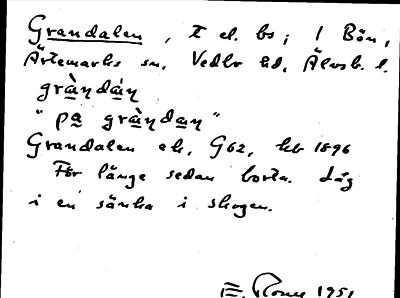 Grandalen, t el. bs; 1 Bön,
Ärtemarks sn, Vedbo hd, Älvsb. l.
gràndán
"pa gràndan"
Grandalen ek, G62, hb 1896
För länge sedan borta. Låg
i en sänka i skogen.
1951